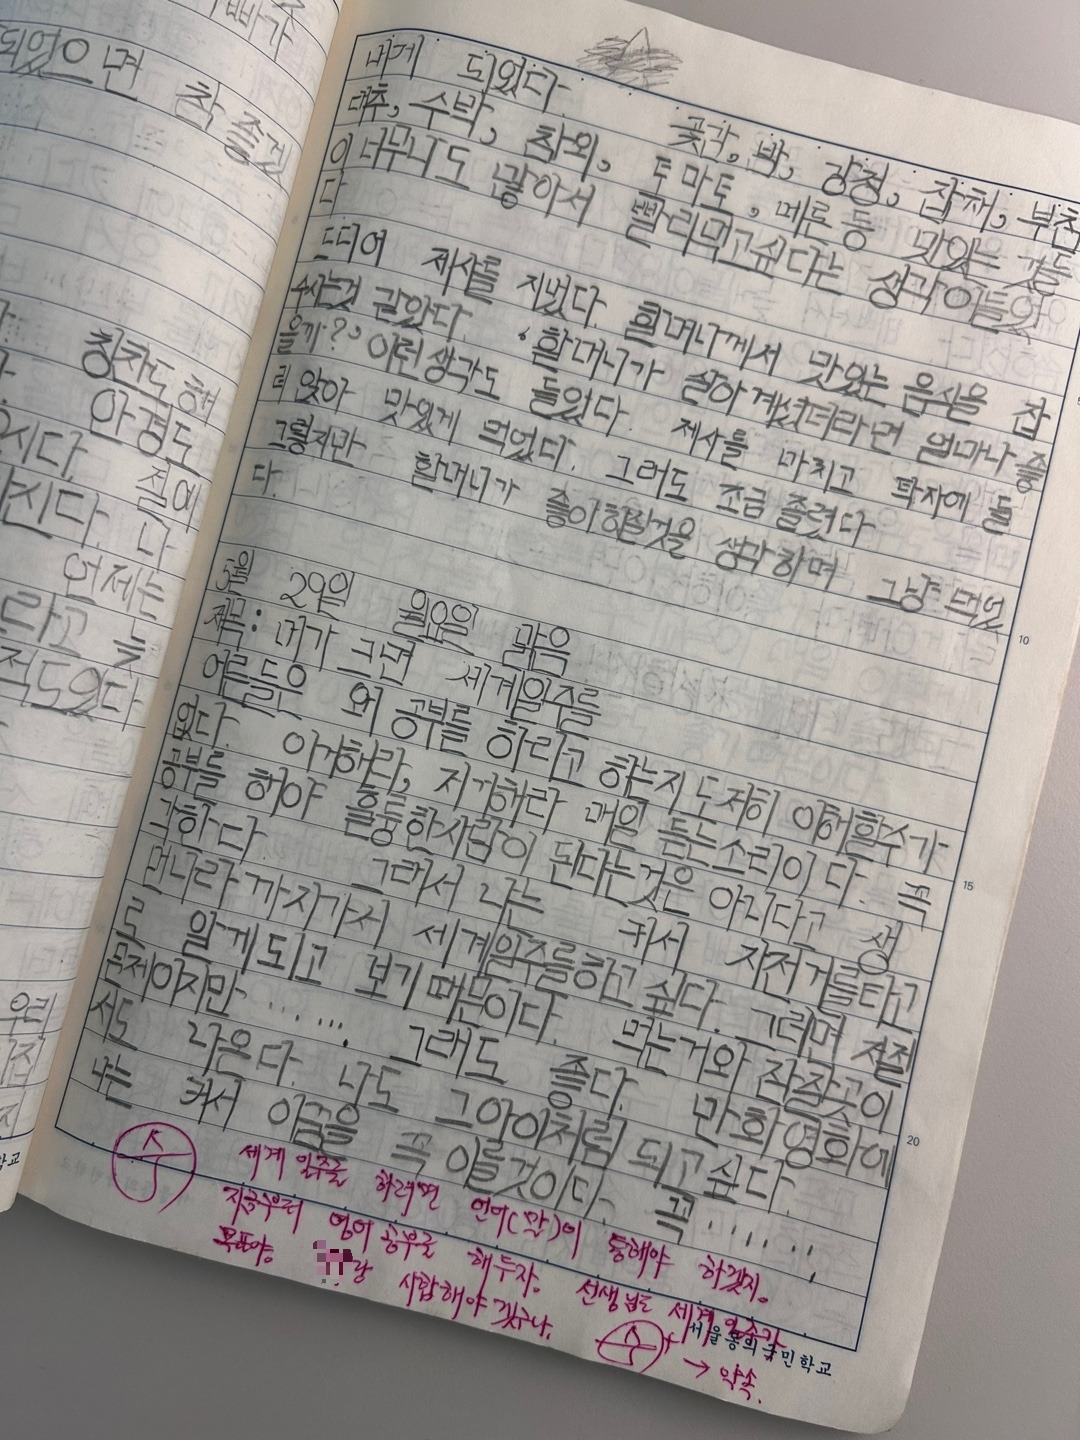 빠가
되었으면 참 좋겠
칭찬도 해
안경도
언제는
라고 늘
적도있다
내게 되었다.
곶감, 밤, 강정, 잡채, 부침
대추, 수박, 참외, 토마토, 메론 등 맛있는 것들
이 너무나도 많아서 빨리먹고싶다는 생각이들었
다
드디어 제사를 지냈다. 할머니께서 맛있는 음식을 잡
수시는것 같았다. '할머니가 살아계셨더라면 얼마나 좋
을까?' 이런생각도 들었다. 제사를 마치고 탁자에 둘
러 앉아 맛있게 먹었다. 그러도 조금 졸렸다
그렇지만 할머니가 좋아하실것을 생각하며 그냥 먹었
다.
5월 29일 월요일 맑음
제목: 내가 크면 세계일주를
어른들은 왜 공부를 하라고 하는지 도저히 이해할수가
없다. 이거해라, 저거해라 매일 듣는소리이다. 꼭
공부를 해야 훌륭한사람이 된다는것은 아니다고 생
각한다. 그래서 나는 커서 자전거를타고
먼나라까지가서 세계일주를하고 싶다. 그러면 저절
로 알게되고 보기때문이다. 먹는거와 잠잘곳이
문제이지만...... 그래도 좋다. 만화영화에
서도 나온다. 나도 그아이처럼 되고싶다.
나는 커서 이꿈을 꼭 이룰것이다. 꼭.....
세계 일주를 하려면 언어(말)이 통해야 하겠지.
지금부터 영어 공부를 해두자. 선생님도 세계 일주가
목표야. 랑 시합해야 겠구나.
→ 약속.
서울동의국민학교
10
15
20